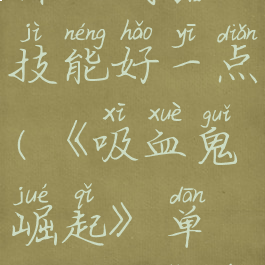 jì néng hǎo yī diǎn
技能好一点
xī xuè guǐ
(《吸血鬼
jué qǐ dān
崛起》单